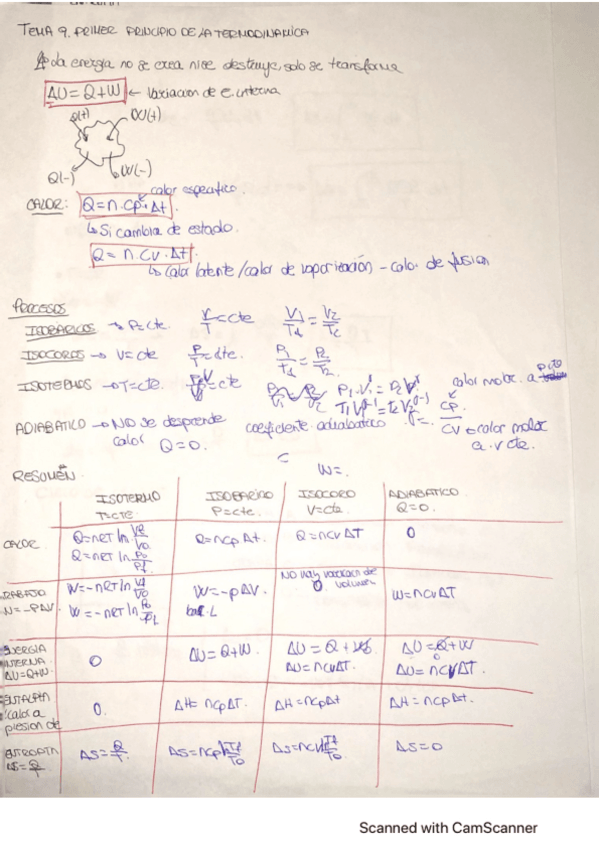 TEMA 9. PRIMER PRINCIPIO DE LA TERMODINAMICA
la energia no se crea ni se destruye, solo se transforma
ΔU = Q + W ← Variacion de e. interna
Q(+) W(+)
Q(-) W(-)
calor especifico
CALOR: Q = n.Cp.Δt.
↳ Si cambia de estado.
Q = n.Cv.Δt.
↳ Calor latente/calor de vaporización - calor de fusion
PROCESOS
ISOBARICOS → P=cte. V/T = cte V1/T1 = V2/T2
ISOCOROS → V=cte P/T = cte. P1/T1 = P2/T2
ISOTERMOS → T=cte.
ADIABATICO → NO se desprende calor Q=0. coeficiente adiabatico
Cv = calor molar a v cte.
W=.
RESUMEN
ISOTERMO T=cte ISOBARICO P=cte. ISOCORO V=cte. ADIABATICO Q=0.
CALOR Q=nRT ln Q=nRT ln Q=ncp Δt. Q=ncvΔT 0
W=-PΔV. W=-nRT ln W=-nRT ln W=-pΔV NO hay variacion de volumen 0. W=ncvΔT
ENERGIA INTERNA ΔU=Q+W 0 ΔU=Q+W. ΔU=Q+W ΔU=ncvΔT. ΔU=Q+W 0 ΔU=ncvΔT.
ENTALPIA calor a presion cte 0. ΔH=ncpΔT. ΔH=ncpΔt ΔH=ncpΔt.
ENTROPIA ΔS=Q/T ΔS=Q/T. ΔS=ncp ln Tf/T0 ΔS=ncv ln Tf/T0 ΔS=0
Scanned with CamScanner